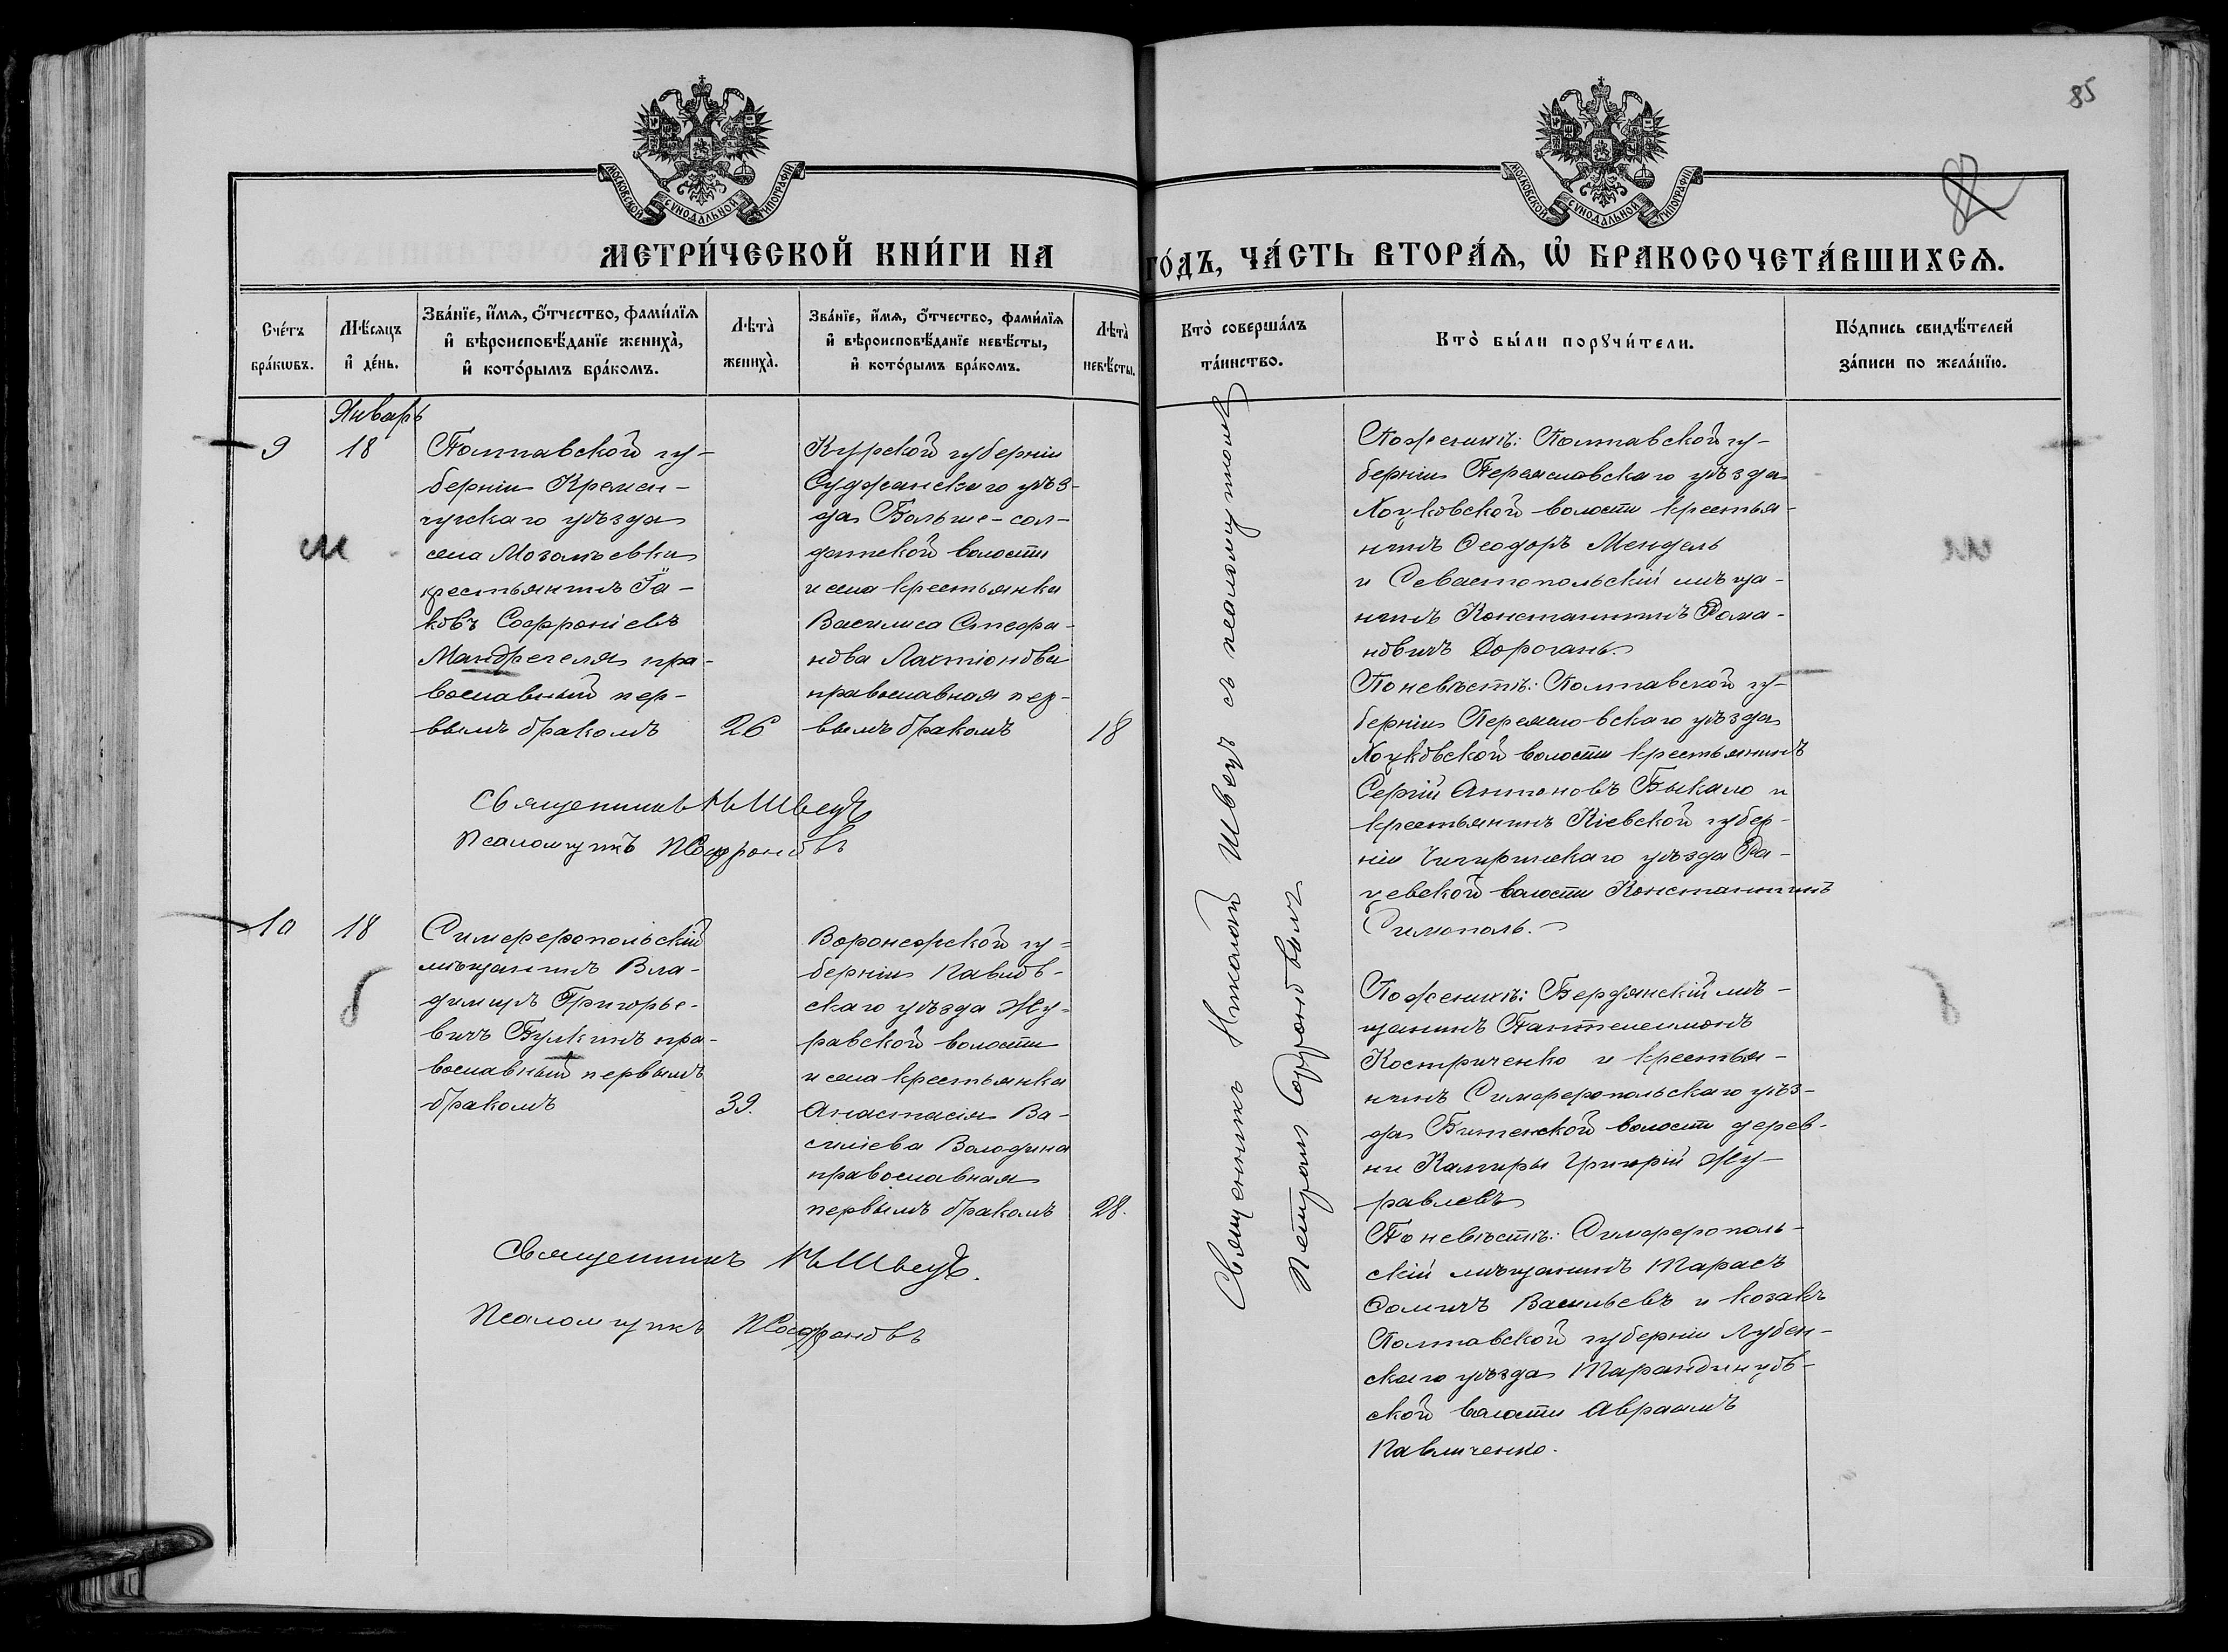 85
МОСКОВСКОЙ СѴНОДАЛЬНОЙ ТИПОГРАФІИ
МОСКОВСКОЙ СѴНОДАЛЬНОЙ ТИПОГРАФІИ
МЕТРИ́ЧЕСКОЙ КНИ́ГИ НА
ГО́ДЪ, ЧА́СТЬ ВТОРА́Ѧ, Ѡ БРАКОСОЧЕТА́ВШИХСѦ.
Сче́тъ
бра́кѡвъ.
Мѣ́сѧцъ
и҆ де́нь.
Зва́нїе, и҆́мѧ, ѻ҆́тчество, фами́лїѧ
и҆ вѣроисповѣ́данїе жениха̀,
и҆ кото́рымъ бра́комъ.
Лѣта̀
жениха̀.
Зва́нїе, и҆́мѧ, ѻ҆́тчество, фами́лїѧ
и҆ вѣроисповѣ́данїе невѣ́сты,
и҆ кото́рымъ бра́комъ.
Лѣта̀
невѣ́сты.
Кто̀ соверша́лъ
та́инство.
Кто̀ бы́ли порꙋчи́тели.
По́дпись свидѣ́телей
за́писи по жела́нїю.
Январь
9
18
Полтавской гу-
берніи Кремен-
чугскаго уѣзда
села
крестьянинъ Іа-
ковъ Софроніевъ
Мандрегеля пра-
вославный пер-
вымъ бракомъ
26
Курской губерніи
Суджанскаго уѣз-
да Больше-сол-
датской волости
и села крестьянка
Василиса Стефа-
нова Лактіонова
православная пер-
вымъ бракомъ
18
Священникъ Н Швецъ
Псаломщикъ П Софроновъ
Священникъ Николай Швецъ съ псаломщикомъ
Петромъ Софроновымъ
По женихѣ: Полтавской гу-
берніи Переяславскаго уѣзда
Хоцковской волости крестья-
нинъ Ѳеодоръ Мендель
и Севастопольскій мѣща-
нинъ Константинъ Рома-
новичъ Дорогань.
По невѣстѣ: Полтавской гу-
берніи Переяславскаго уѣзда
Хоцковской волости крестьянинъ
Сергій Антоновъ Быкало и
крестьянинъ Кіевской губер-
ніи Чигиринскаго уѣзда Ра-
цевской волости Константинъ
Симополь.
10
18
Симферопольскій
мѣщанинъ Вла-
димиръ Григорье-
вичъ Булкинъ пра-
вославный первымъ
бракомъ
39.
Воронежской гу-
берніи Павлов-
скаго уѣзда Жу-
равской волости
и села крестьянка
Анастасія Ва-
силіева Володина
православная
первымъ бракомъ
28.
Священникъ Н Швецъ.
Псаломщикъ П Софроновъ
По женихѣ: Бердянскій мѣ-
щанинъ Пантелеимонъ
Костриченко и крестья-
нинъ Симферопольскаго уѣз-
да Битенской волости дерев-
ни Григорій Жу-
равлевъ
По невѣстѣ: Симферополь-
скій мѣщанинъ Тарасъ
Ѳомичъ Васильевъ и козакъ
Полтавской губерніи Лубен-
скаго уѣзда Тарандинцов-
ской волости Авраамъ
Павличенко.